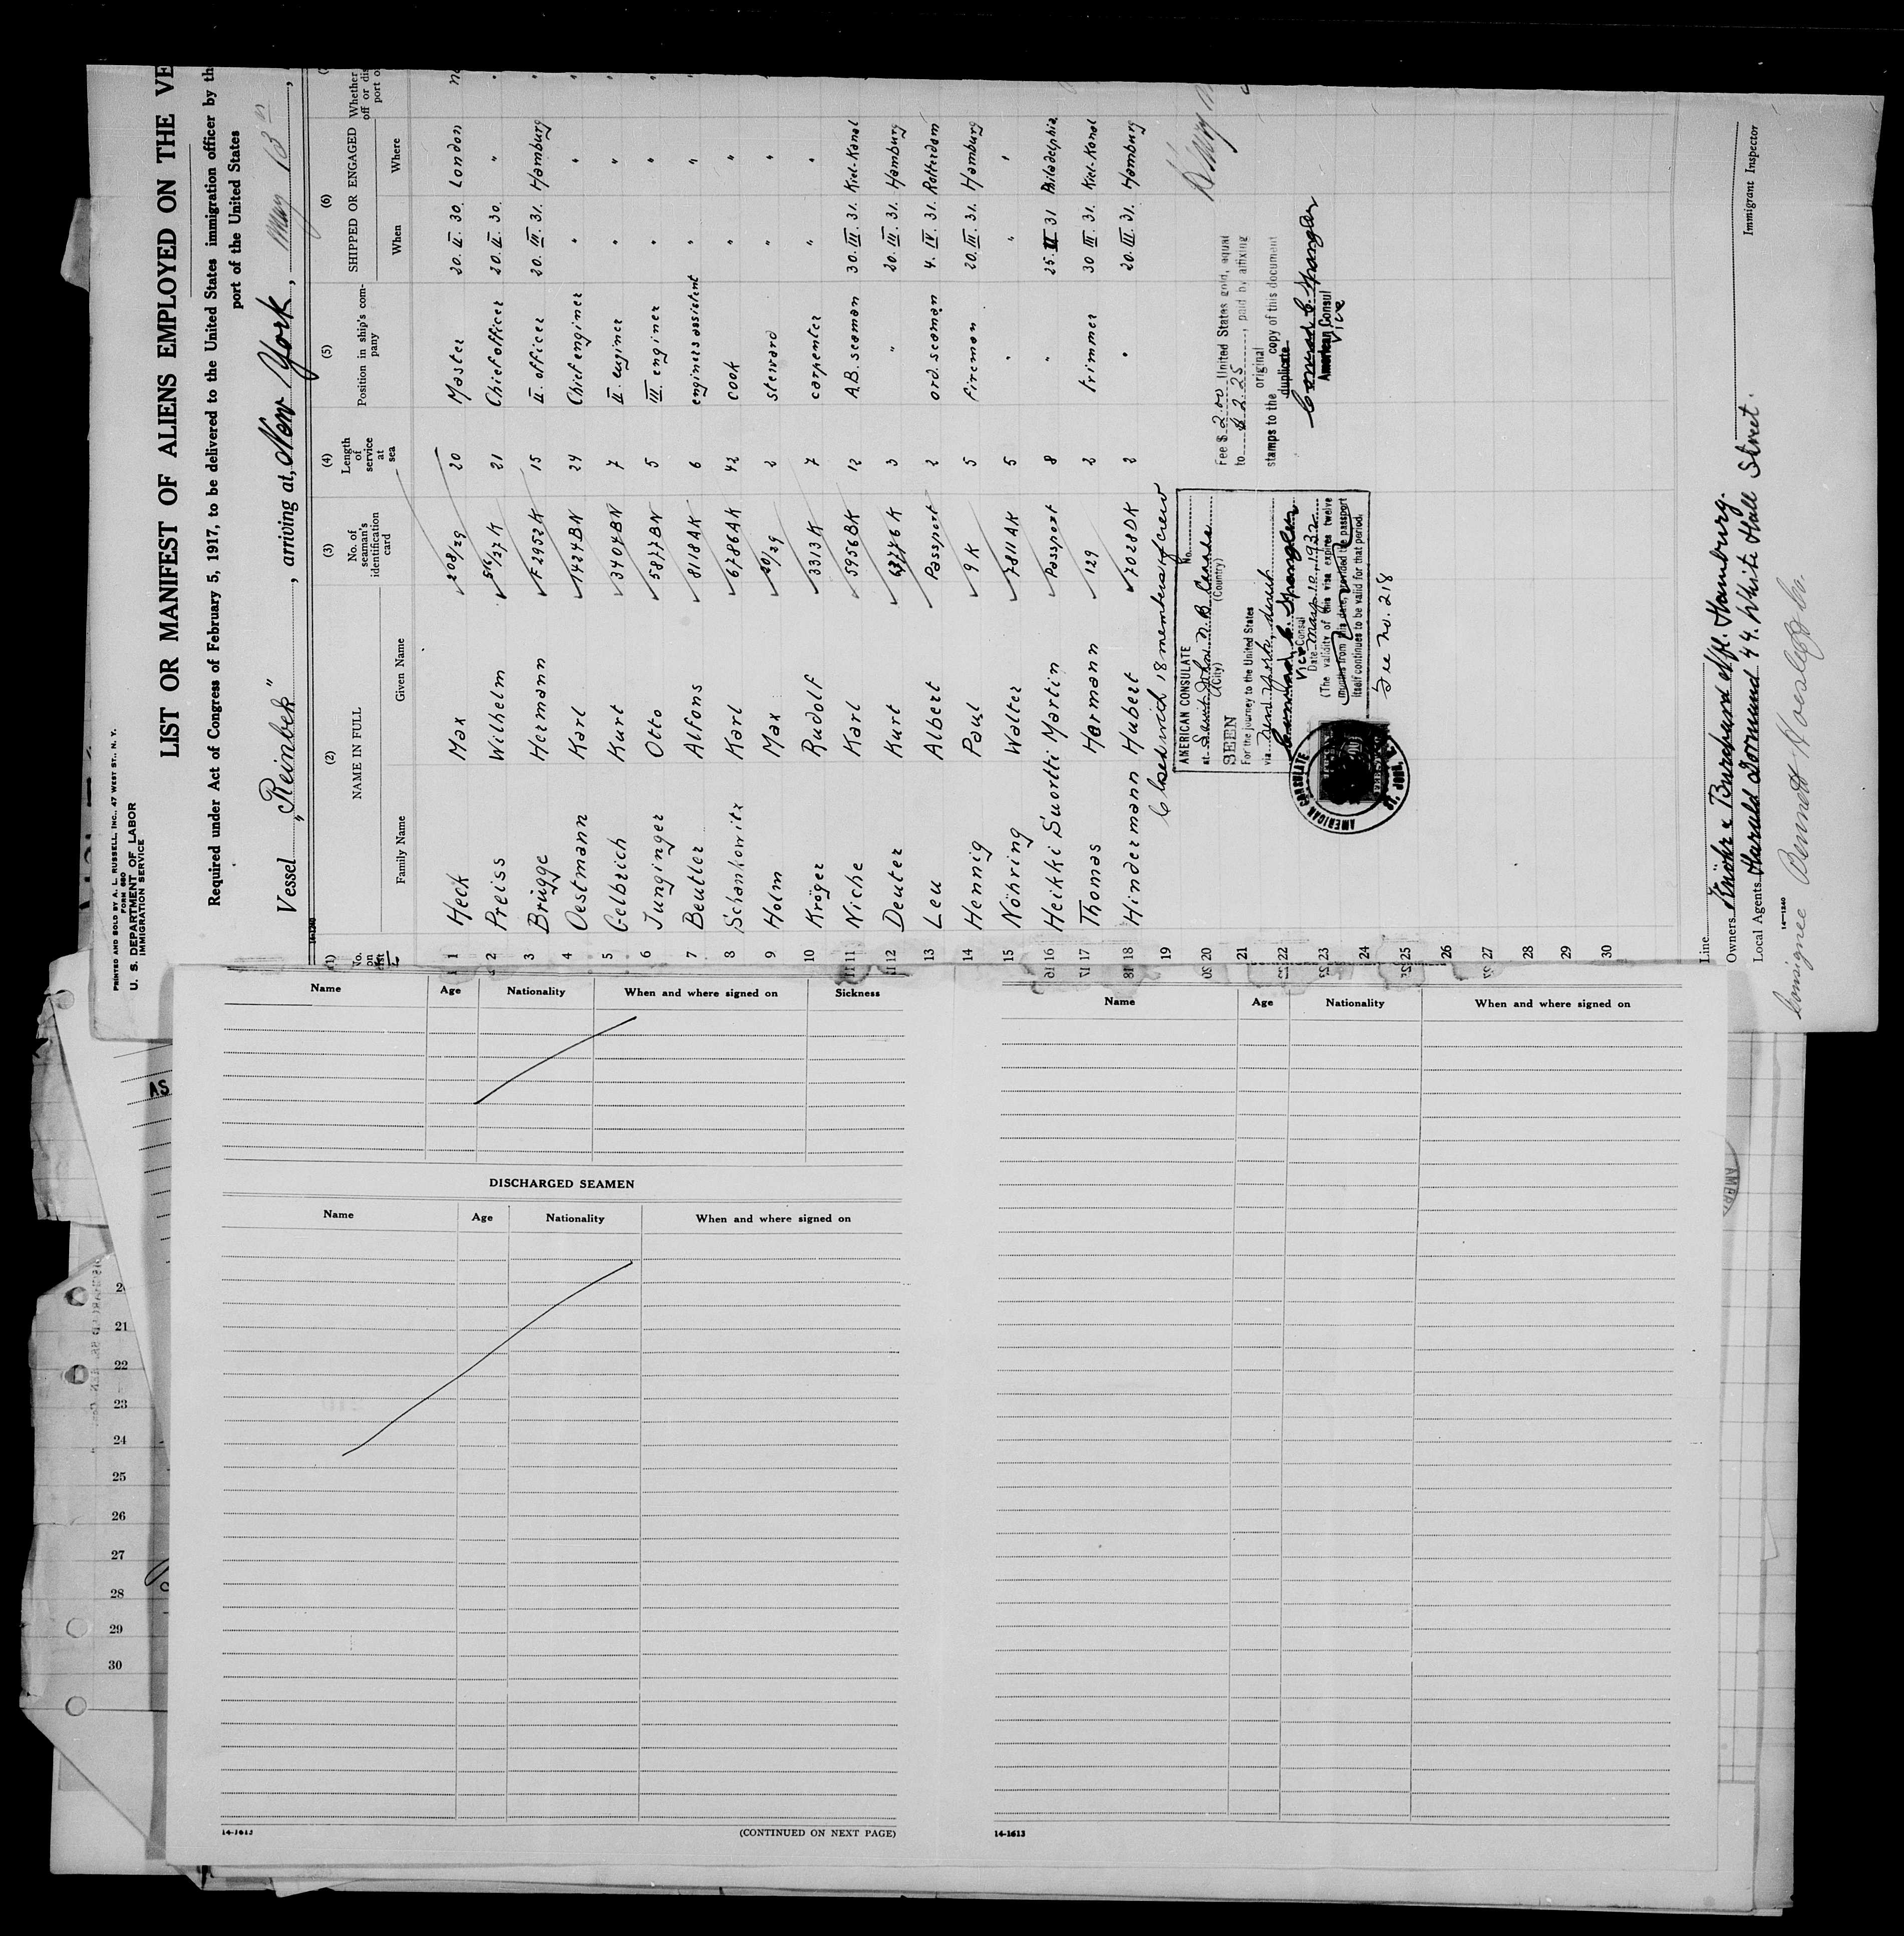 PRINTED AND SOLD BY A. L. RUSSELL, INC., 47 WEST ST., N. Y.
FORM 680
U. S. DEPARTMENT OF LABOR
IMMIGRATION SERVICE
LIST OR MANIFEST OF ALIENS EMPLOYED ON THE VE
Required under Act of Congress of February 5, 1917, to be delivered to the United States immigration officer by th
port of the United States
Vessel „Reinbek”, arriving at, New York, May 13th,
(1) (2) (3) (4) (5) (6)
No. on list NAME IN FULL No. of seaman's identification card Length of service at sea Position in ship's company SHIPPED OR ENGAGED Whether
off or dis
port o
Family Name Given Name When Where
1 Heck Max 208/29 20 Master 20. II. 30. London
2 Preiss Wilhelm 516/27 K 21 Chief officer 20. II. 30. "
3 Brügge Hermann F2952K 15 II. officer 20. III. 31. Hamburg
4 Oestmann Karl 1424BN 24 Chief enginer " "
5 Gelbrich Kurt 3404BN 7 II. enginer " "
6 Junginger Otto 5877BN 5 III. enginer " "
7 Beutler Alfons 8118AK 6 engineers assistent " "
8 Schankowitz Karl 6786AK 42 cook " "
9 Holm Max 20/29 2 steward " "
10 Kröger Rudolf 3313K 7 carpenter " "
11 Niche Karl 5956BK 12 A.B. seaman 30. III. 31. Kiel-Kanal
12 Deuter Kurt K 3 " 20. III. 31. Hamburg
13 Leu Albert Passport 2 ord. seaman 4. IV. 31. Rotterdam
14 Hennig Paul 9 K 5 fireman 20. III. 31. Hamburg
15 Nöhring Walter 7811AK 5 " " "
16 Heikki Suortti Martin Passport 8 " 25. 31 Philadelphia
17 Thomas Harmann 129 2 trimmer 30 III. 31. Kiel-Kanal
18 Hindermann Hubert 7028DK 2 " 20. III. 31. Hamburg
19 Closed with 18 members of crew
20
21
22
23
24
25
26
27
28
29
30
AMERICAN CONSULATE
No.
at Saint John N.B. Canada
(City) (Country)
SEEN
For the journey to the United States
via New York, direct
Vice Consul
Date May 10, 1932
(The validity of this visa expires twelve
months from this date, provided the passport
itself continues to be valid for that period.
See No. 218
AMERICAN CONSULATE
ST. JOHN, N.B.
Fee $ 2.00 United States gold, equal
to $ 2.25, paid by affixing
stamps to the original
duplicate copy of this document
American Consul
Vice
Line
Owners Knöhr & Burchard Nfl. Hamburg.
Local Agents Harald Dormund 44. White Hall Street.
Immigrant Inspector
14—1240
Consignee Bennett
Name Age Nationality When and where signed on Sickness
DISCHARGED SEAMEN
Name Age Nationality When and where signed on
14-1613 (CONTINUED ON NEXT PAGE)
Name Age Nationality When and where signed on
14-1613
AS
21
22
23
24
25
26
27
28
29
30